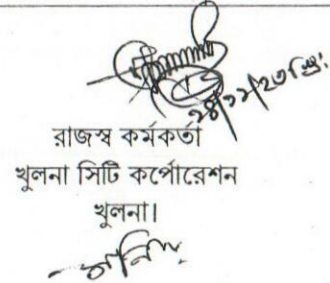 ২৪/১২/২৩ খ্রি:
রাজস্ব কর্মকর্তা
খুলনা সিটি কর্পোরেশন
খুলনা।